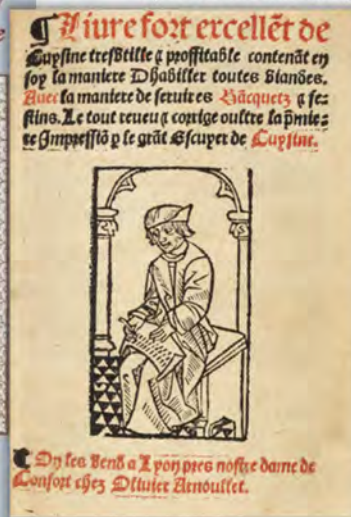 ¶ Liure fort excellẽt de
Cuysine tresutille ⁊ proffitable contenãt en
soy la maniere Dhabiller toutes viandes.
Auec la maniere de seruir es Bãcquetz ⁊ fe=
stins. Le tout reueu ⁊ corrige oultre la p̃mie=
re Impressiõ p le grãt Escuyer de Cuysine.
¶ On les vend a Lyon pres nostre dame de
Confort chez Oliuier Arnoullet.